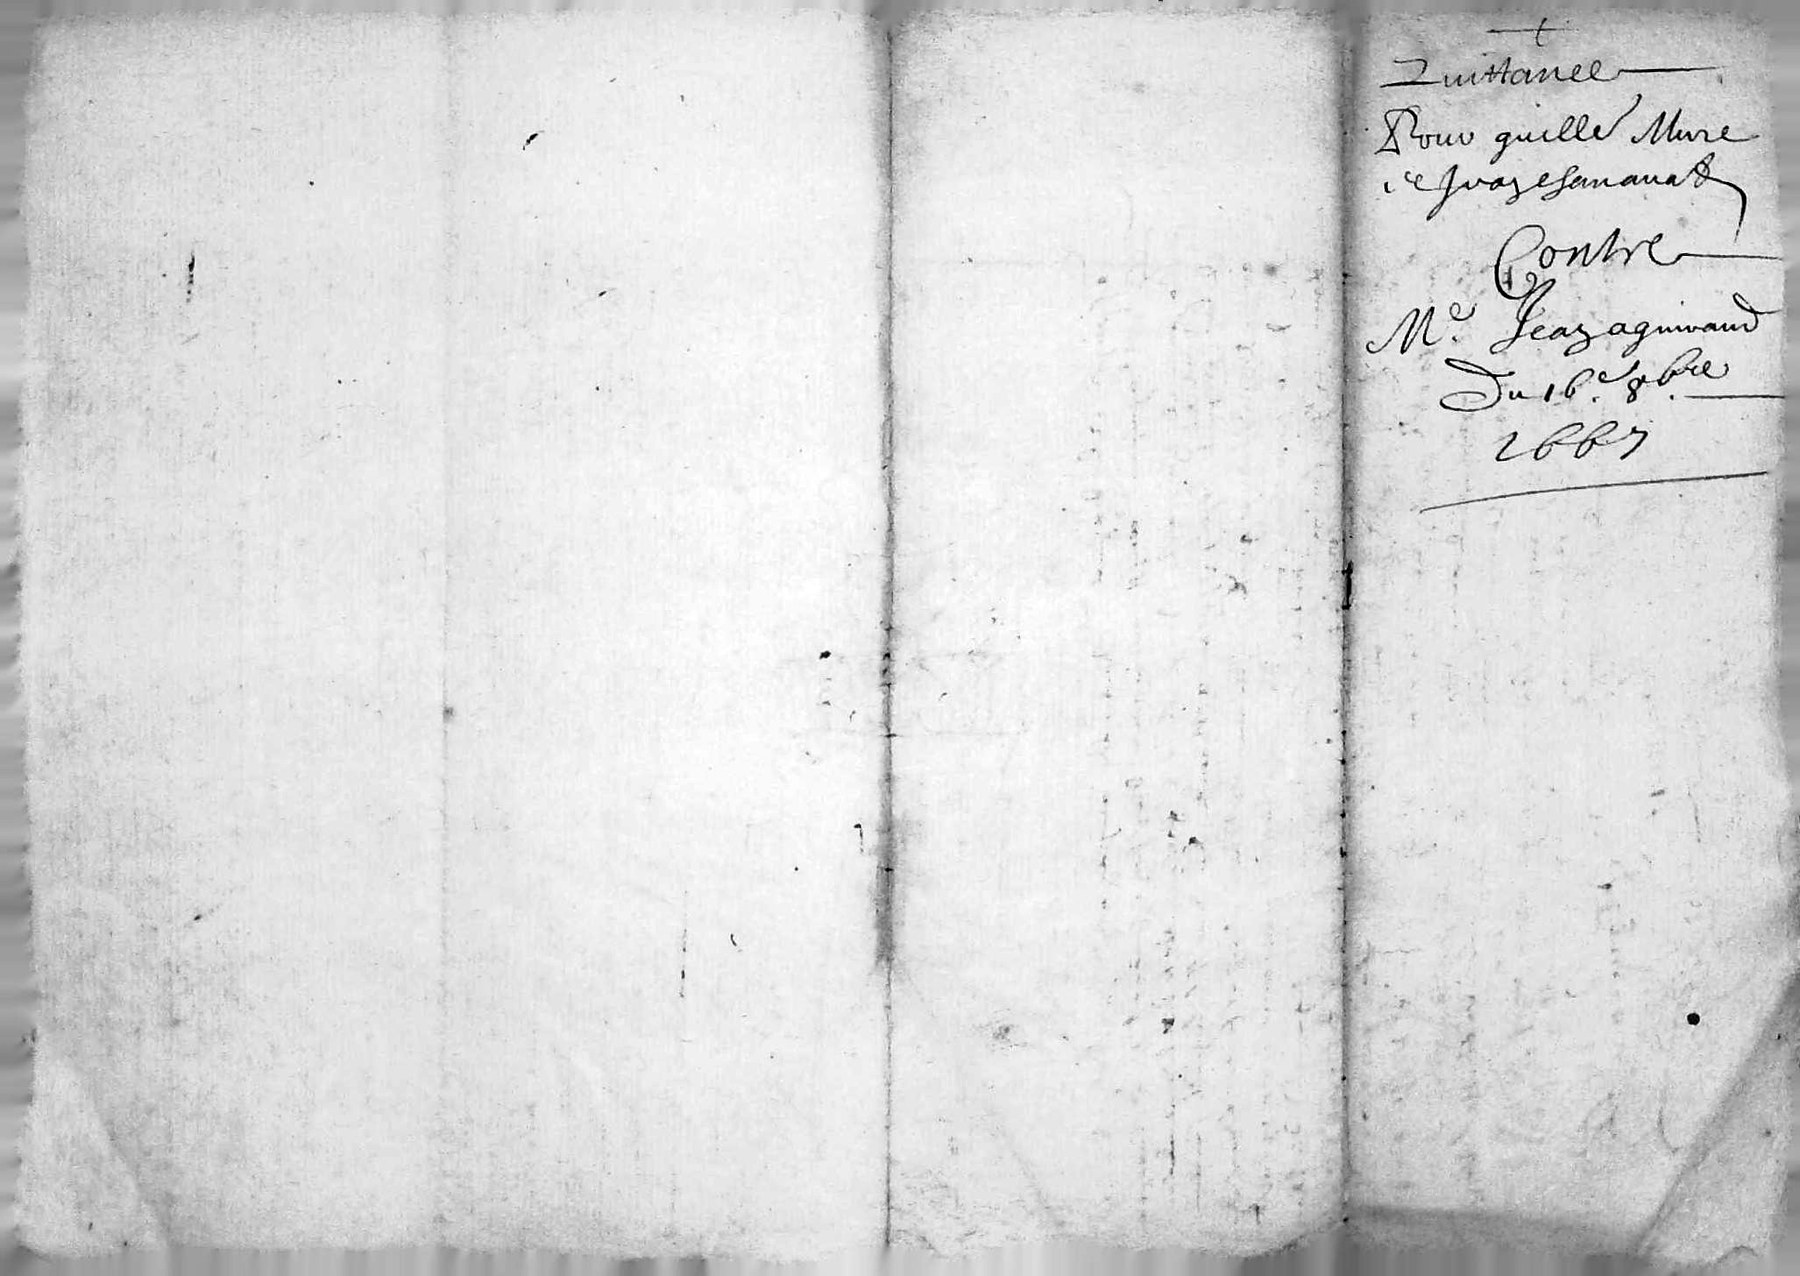 Quittance
Pour guille Mure
et Jean
Contre
Me. Jean aguiraud
Du 16e. 8bre
1667